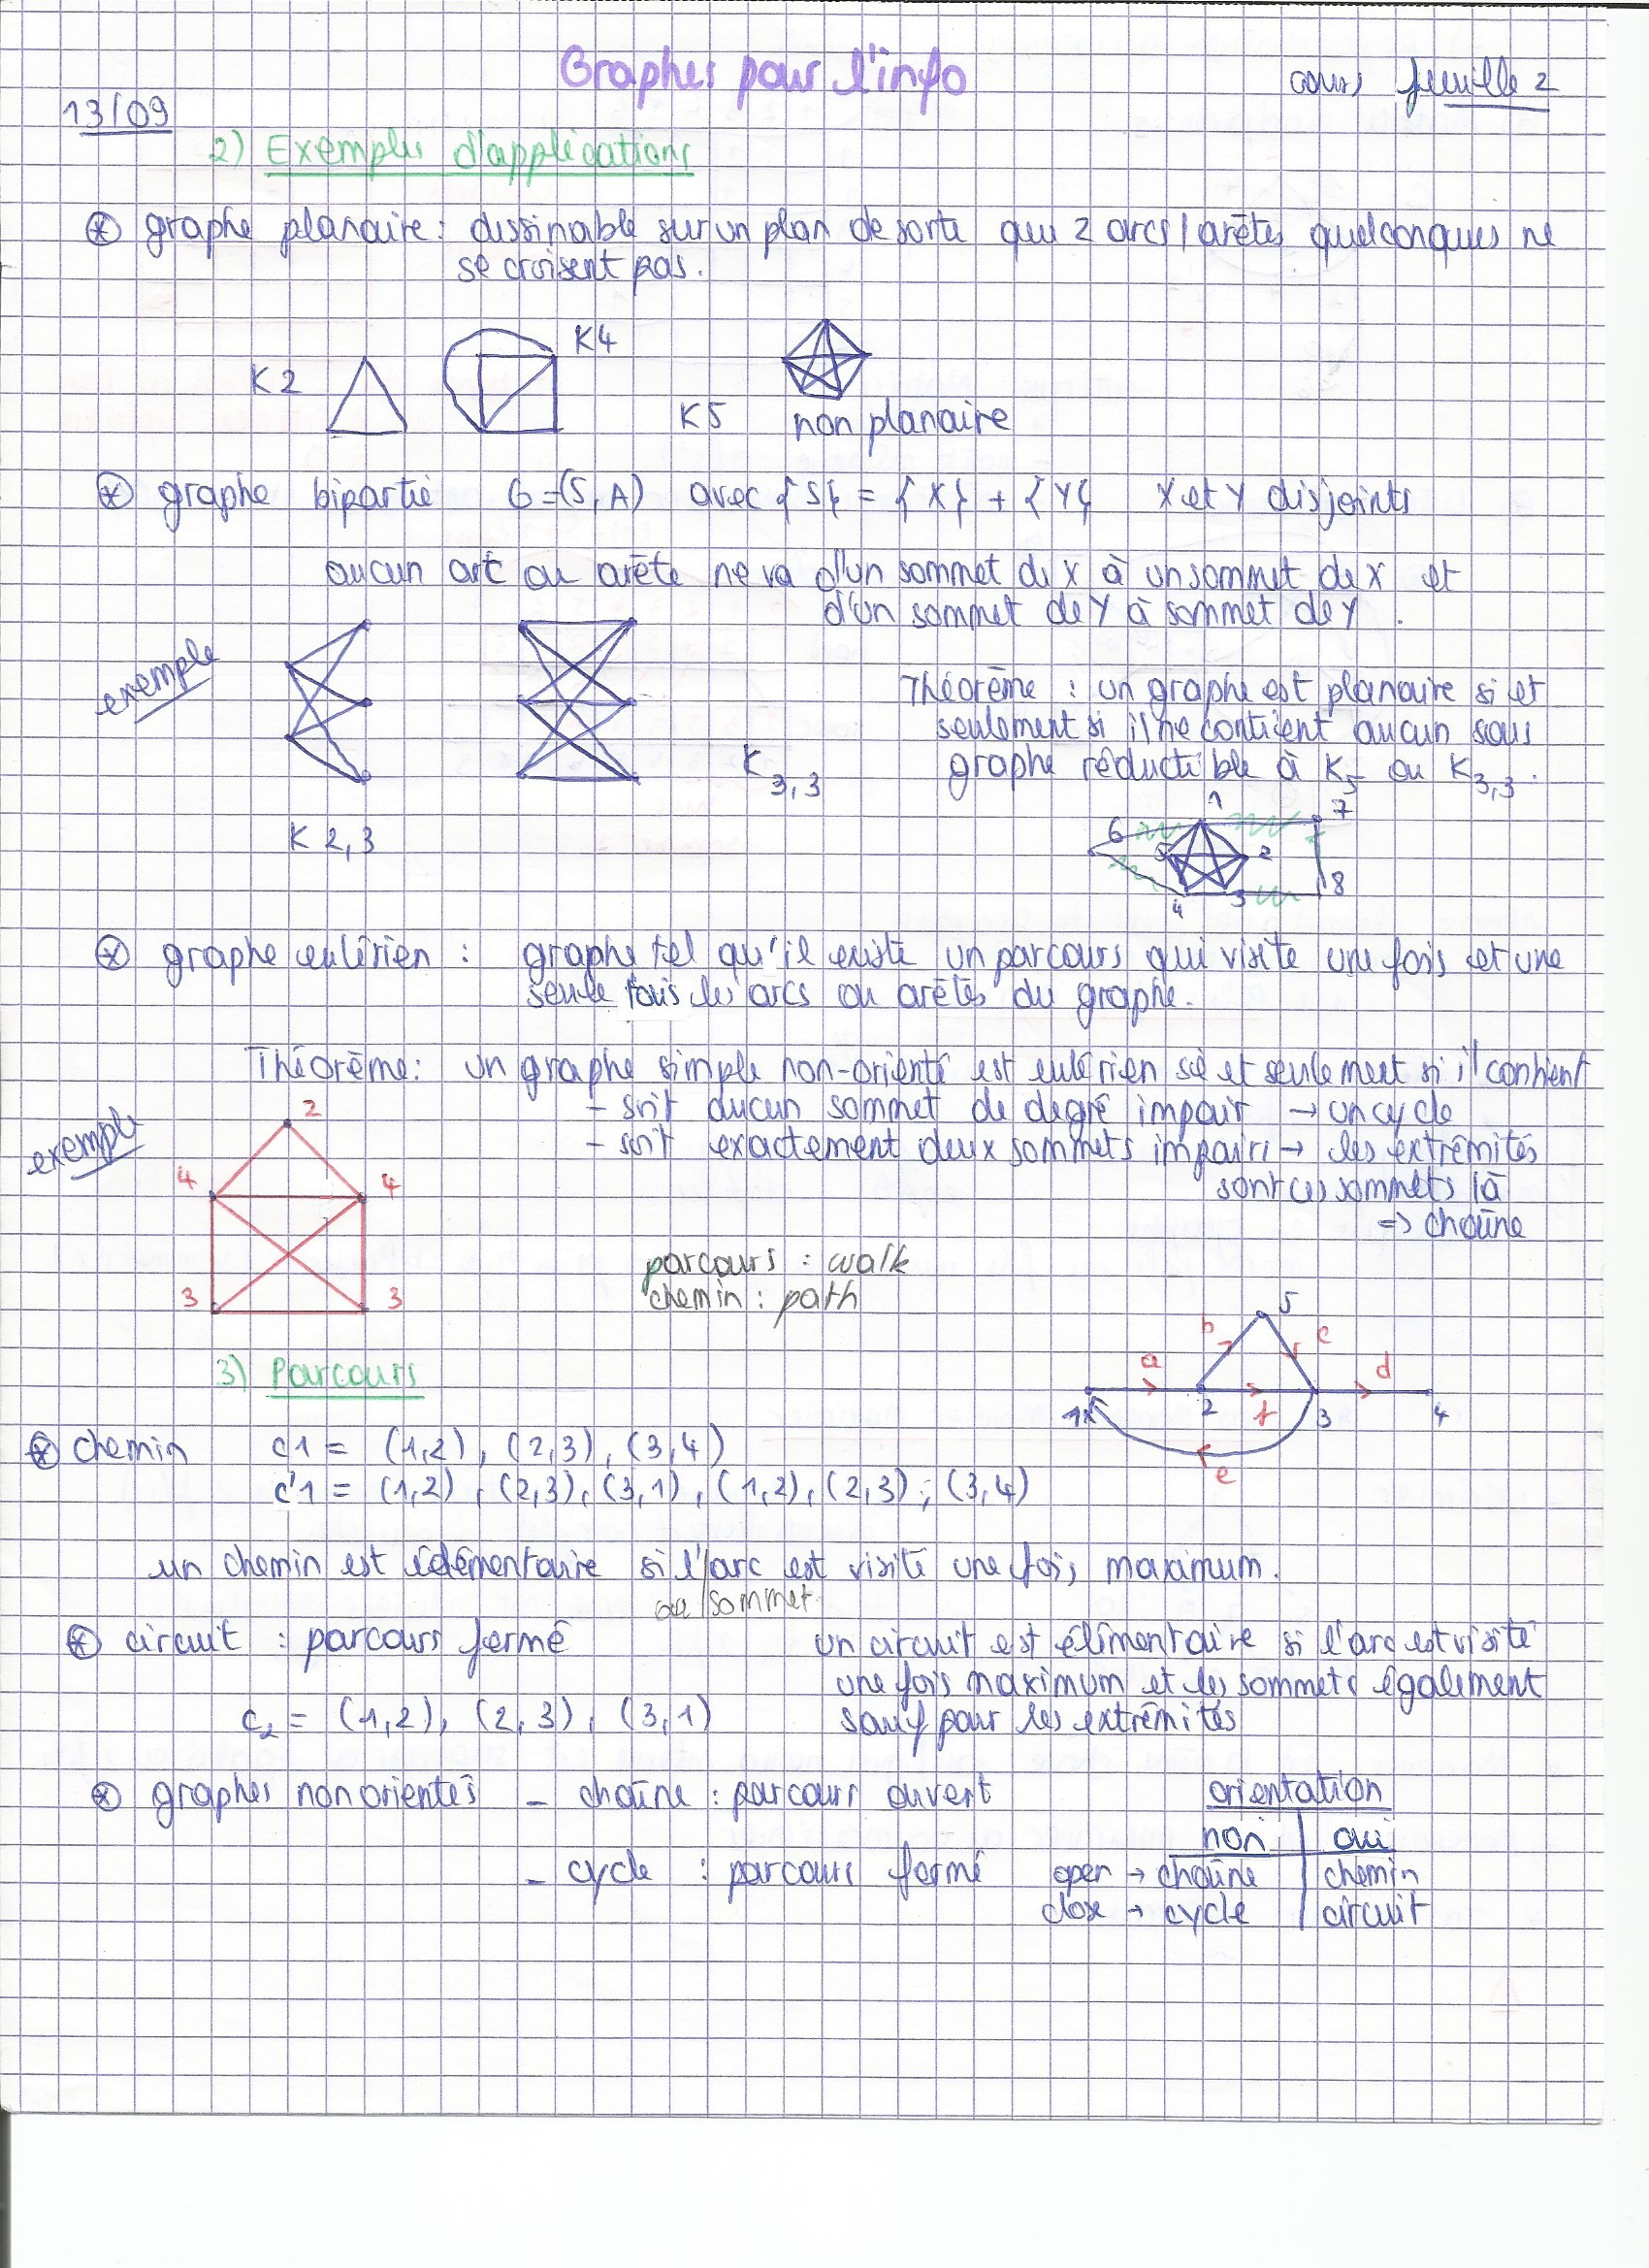 Graphes pour l'info
cours feuille 2
13/09
2) Exemples d'applications
⊛ graphe planaire : dessinable sur un plan de sorte que 2 arcs/arêtes quelconques ne
se croisent pas.
K2
K4
K5
non planaire
⊛ graphe bipartie G=(S,A) avec {S} = {X} + {Y} X et Y disjoints
aucun arc ou arête ne va d'un sommet de X à un sommet de X et
d'un sommet de Y à sommet de Y.
exemple
K 2,3
K 3,3
Théorème : un graphe est planaire si et
seulement si il ne contient aucun sous
graphe réductible à K5 ou K3,3.
1
7
6
5
2
8
4
3
⊛ graphe eulérien : graphe tel qu'il existe un parcours qui visite une fois et une
seule fois les arcs ou arêtes du graphe.
Théorème : un graphe simple non-orienté est eulérien si et seulement si il contient
- soit aucun sommet de degré impair → un cycle
- soit exactement deux sommets impairs → les extrêmités
sont ces sommets là
=> chaîne
exemple
2
4 4
3 3
parcours : walk
chemin : path
3) Parcours
5
b c
a d
1 2 f 3 4
e
⊛ chemin c1 = (1,2), (2,3), (3,4)
c'1 = (1,2), (2,3), (3,1), (1,2), (2,3), (3,4)
un chemin est élémentaire si l'arc est visité une fois maximum.
ou sommet
⊛ circuit : parcours fermé
c2 = (1,2), (2,3), (3,1)
un circuit est élémentaire si l'arc est visité
une fois maximum et les sommets également
sauf pour les extrêmités
⊛ graphes non orientés - chaîne : parcours ouvert
- cycle : parcours fermé
orientation
non | oui
open → chaîne | chemin
close → cycle | circuit